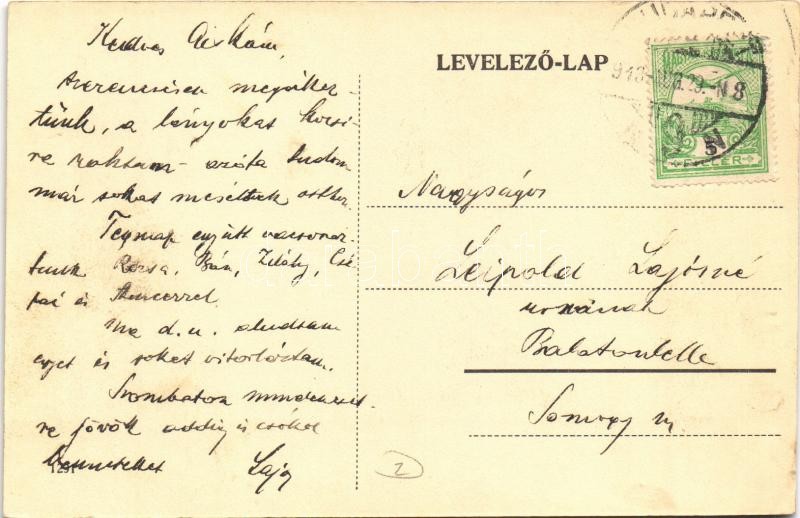 Kedves
szerencsésen megérkez-
tünk, a lányokat kocsi-
ra raktam - azóta tudom
már sokat meséltek otthon.
Tegnap együtt vacsoráz-
tunk Rózsa, Bán, Zilahy, Csé-
pai és
Ma d.u. aludtam
egyet és sokat vitorláztam.
Szombaton mindeneset-
re jövök addig is csókol
benneteket Lajos
1291
2
LEVELEZŐ-LAP
Nagyságos
Leipold Lajosné
úrnőnek
Balatonlelle
Somogy m.
FILLÉR